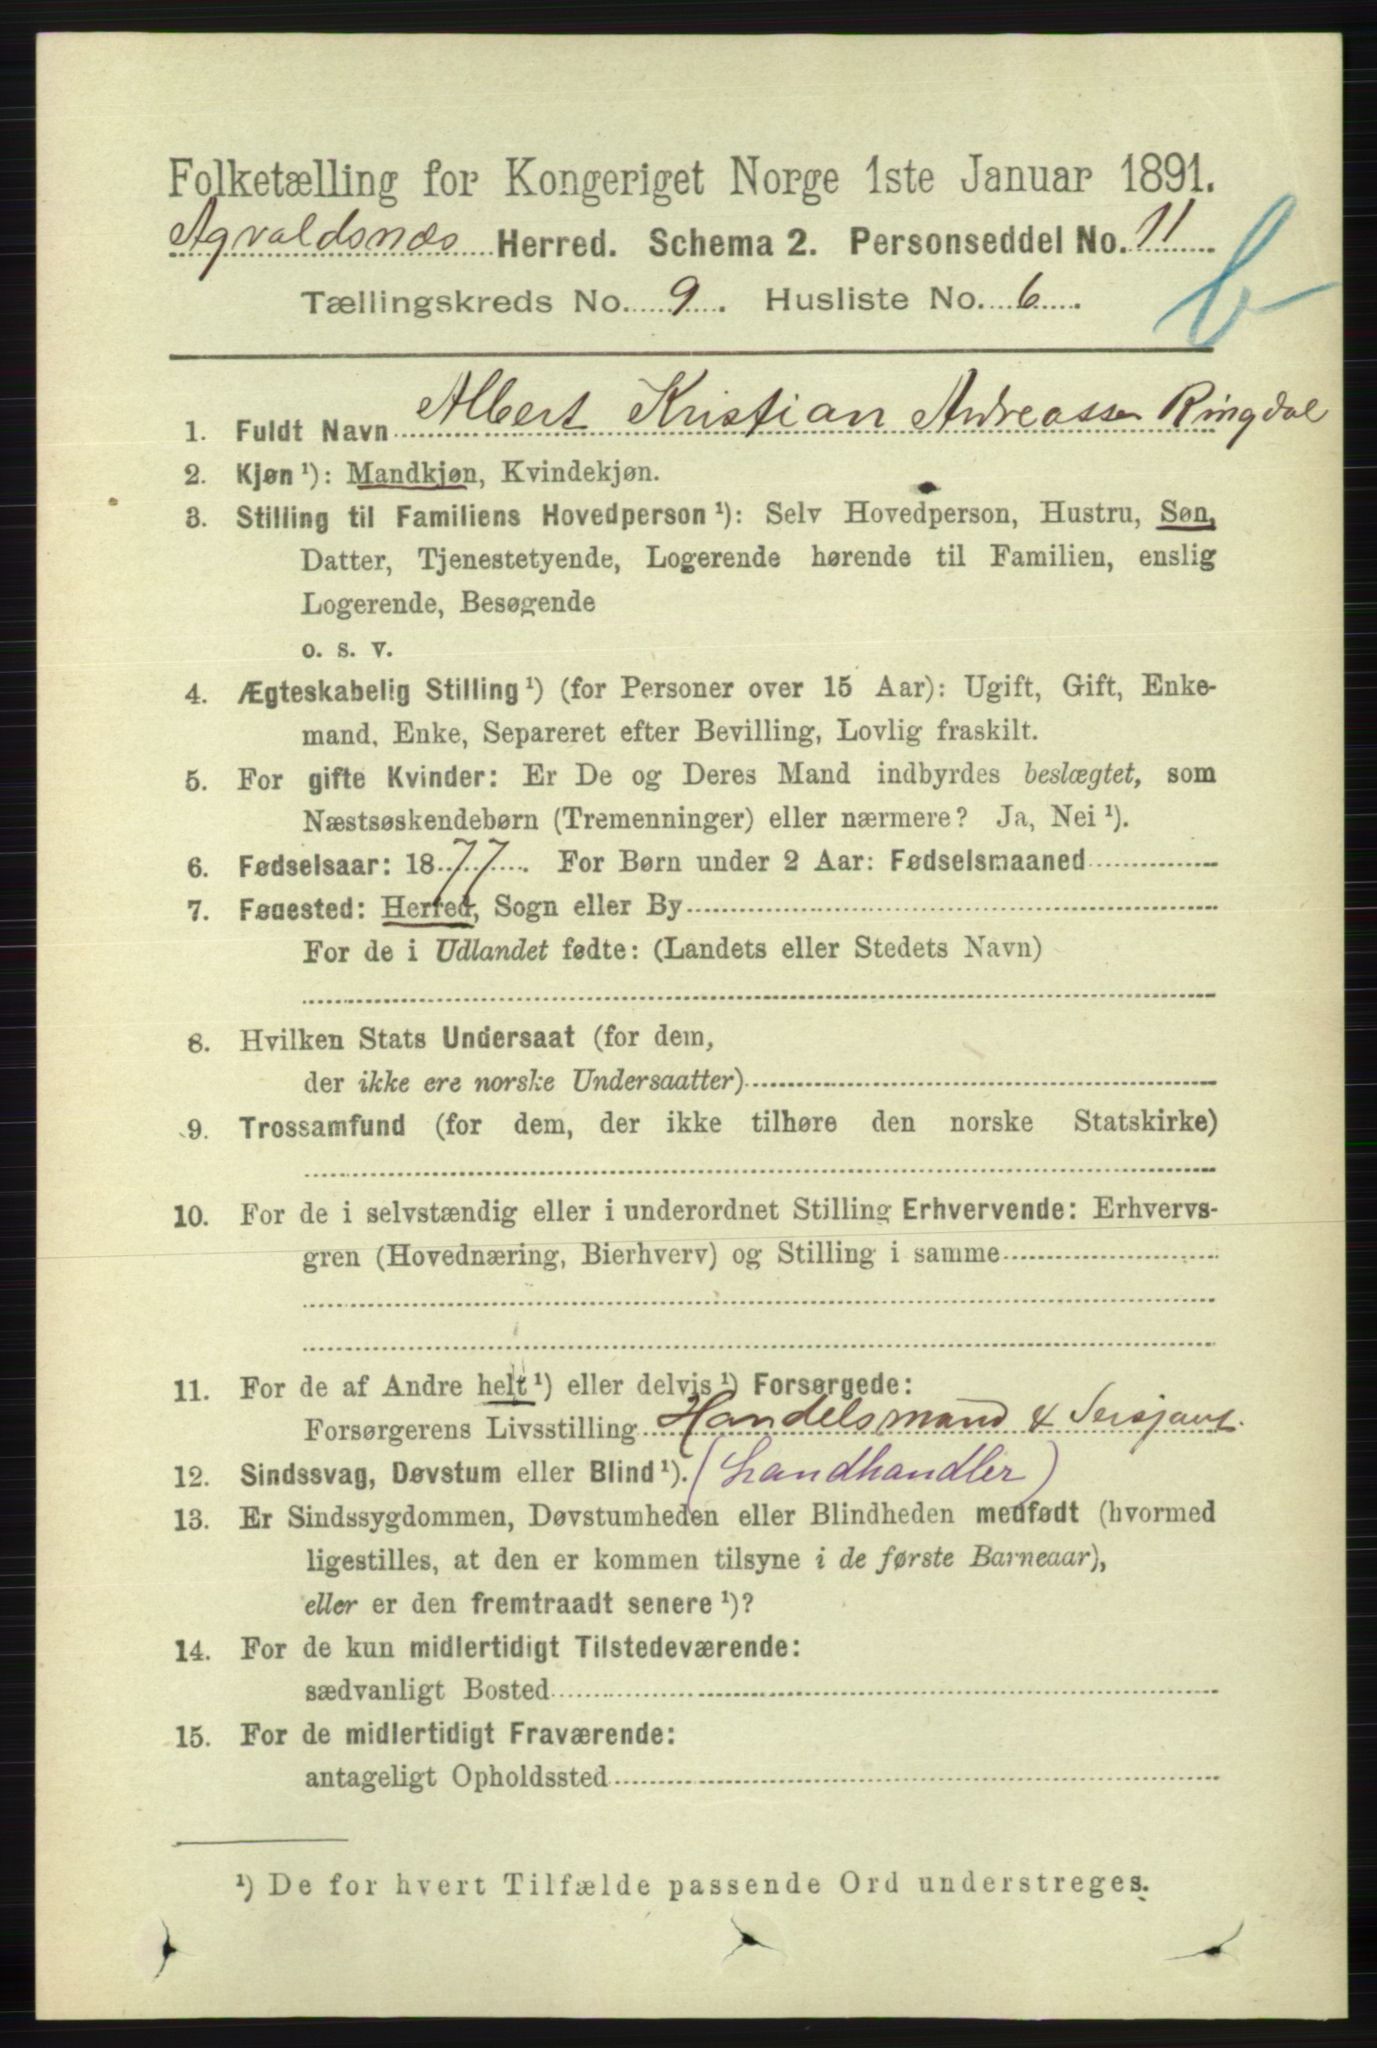 Folketælling for Kongeriget Norge 1ste Januar 1891.
Agvaldsnæs Herred. Schema 2. Personseddel No. 11
Tællingskreds No. 9. Husliste No. 6.
b
1. Fuldt Navn Albert Kristian Andreassen Ringdal
2. Kjøn ¹): Mandkjøn, Kvindekjøn.
3. Stilling til Familiens Hovedperson ¹): Selv Hovedperson, Hustru, Søn,
Datter, Tjenestetyende, Logerende hørende til Familien, enslig
Logerende, Besøgende
o. s. v.
4. Ægteskabelig Stilling ¹) (for Personer over 15 Aar): Ugift, Gift, Enke-
mand, Enke, Separeret efter Bevilling, Lovlig fraskilt.
5. For gifte Kvinder: Er De og Deres Mand indbyrdes beslægtet, som
Næstsøskendebørn (Tremenninger) eller nærmere? Ja, Nei ¹).
6. Fødselsaar: 1877. For Børn under 2 Aar: Fødselsmaaned
7. Fødested: Herred, Sogn eller By
For de i Udlandet fødte: (Landets eller Stedets Navn)
8. Hvilken Stats Undersaat (for dem,
der ikke ere norske Undersaatter)
9. Trossamfund (for dem, der ikke tilhøre den norske Statskirke)
10. For de i selvstændig eller i underordnet Stilling Erhvervende: Erhvervs-
gren (Hovednæring, Bierhverv) og Stilling i samme
11. For de af Andre helt ¹) eller delvis ¹) Forsørgede:
Forsørgerens Livsstilling Handelsmand & Sersjant.
12. Sindssvag, Døvstum eller Blind ¹). (Landhandler)
13. Er Sindssygdommen, Døvstumheden eller Blindheden medfødt (hvormed
ligestilles, at den er kommen tilsyne i de første Barneaar),
eller er den fremtraadt senere ¹)?
14. For de kun midlertidigt Tilstedeværende:
sædvanligt Bosted
15. For de midlertidigt Fraværende:
antageligt Opholdssted
¹) De for hvert Tilfælde passende Ord understreges.